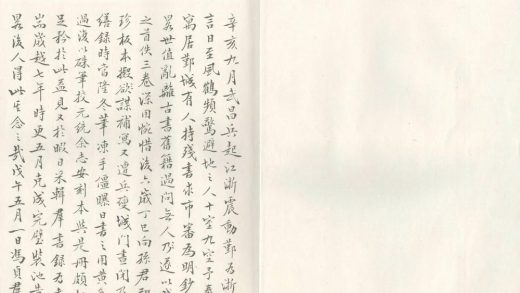 辛亥九月武昌兵起江浙震動鄞為浙
言日至風鶴頻驚避地之人十室九空予
寓居鄞城有人持殘書求市審為明鈔
畧世值亂離古書舊籍過問無人乃遂以
之首佚三卷深用惋惜後六歲丁巳向孫君
珍板本擬欲謀補寫又遭兵變城門晝閉乃
繕錄時當隆冬筆凍手僵曝日書之用黃
過後以硃筆校元統余志安刻本與是冊頗
足矜於此益見又於暇日采輯羣書錄為
耑歲越七年時更五月克成完璧裝池告
畧後人得此生念之哉戊午五月一日馮貞羣